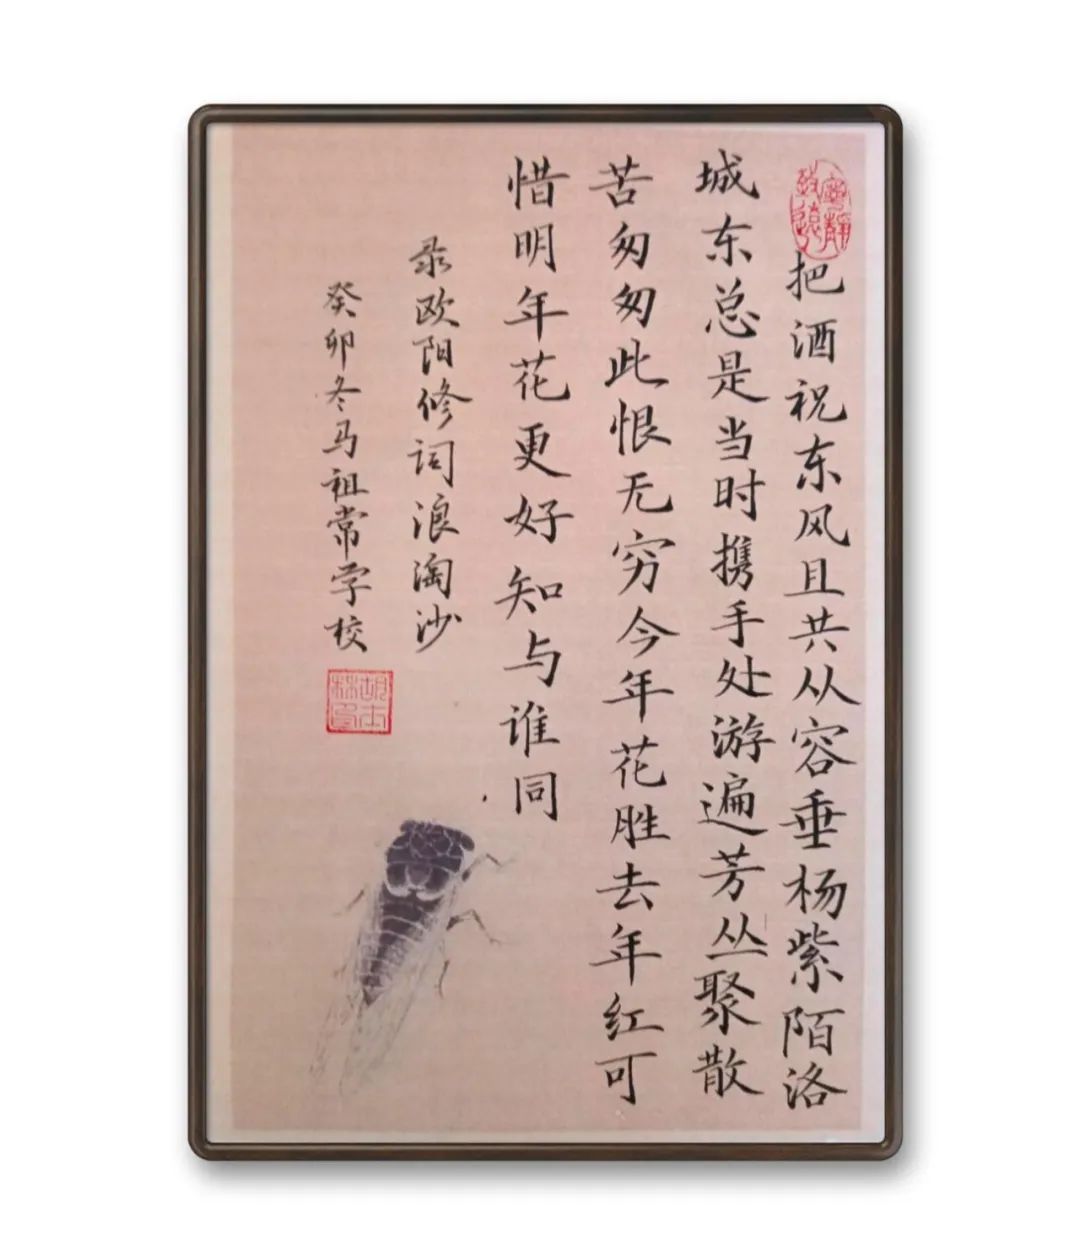 宁静致远
把酒祝东风且共从容垂杨紫陌洛
城东总是当时携手处游遍芳丛聚散
苦匆匆此恨无穷今年花胜去年红可
惜明年花更好知与谁同
录欧阳修词浪淘沙
癸卯冬马祖常学校